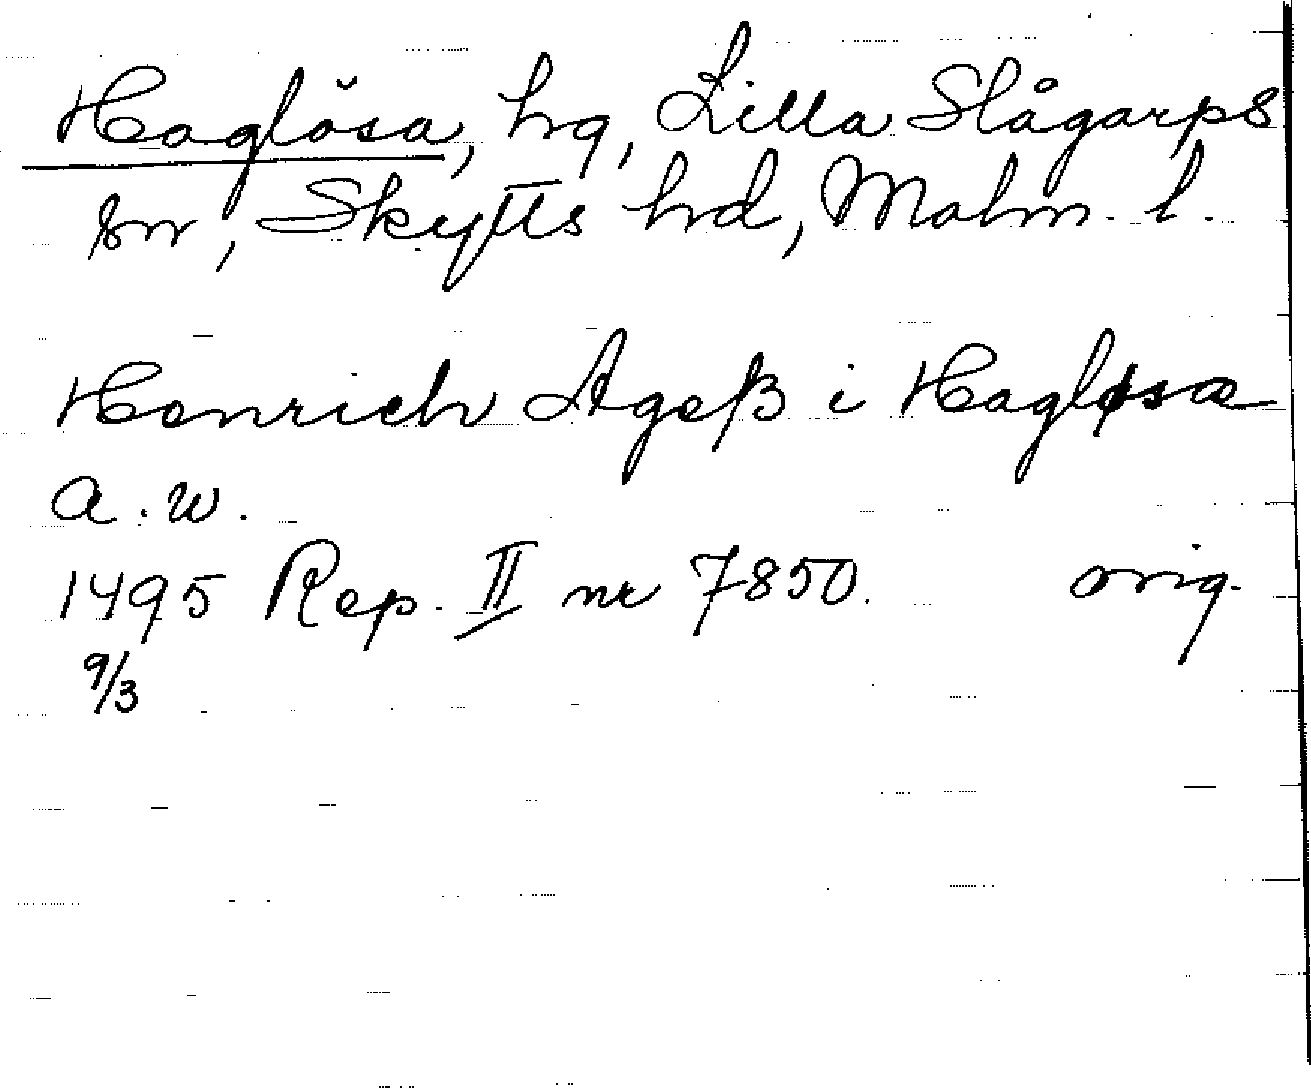 Haglösa, hg, Lilla Slågarps
sn, Skytts hd, Malm. l.
Henrich Ageß i Hagløsæ
a. w.
1495 Rep. II nr 7850. orig.
9/3